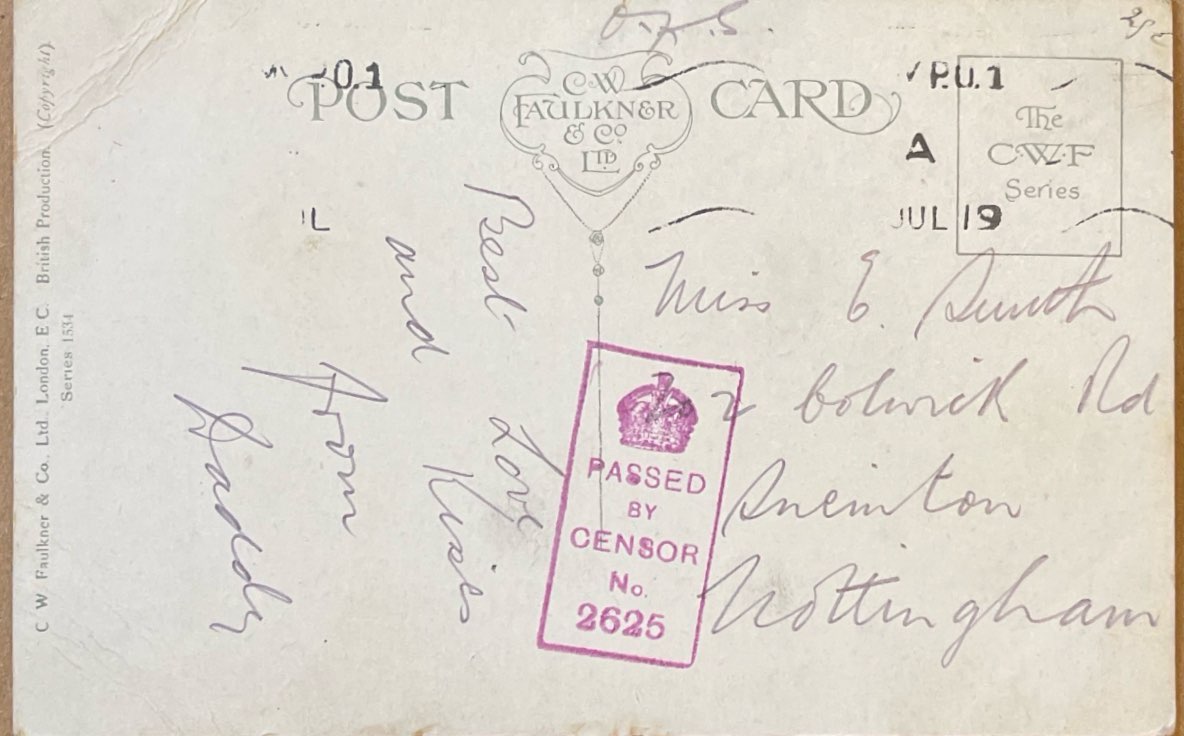 O.A.S.
POST CARD
C.W.
FAULKNER
& Co.
LTD
P.O.1
A
JUL 19
The
C.W.F
Series
C W Faulkner & Co., Ltd., London. E.C. British Production. (Copyright).
Series 1534
Best Love
and Kisses
from
Daddy
Miss E. Smith
2 Colwick Rd
Sneinton
Nottingham
PASSED
BY
CENSOR
No.
2625